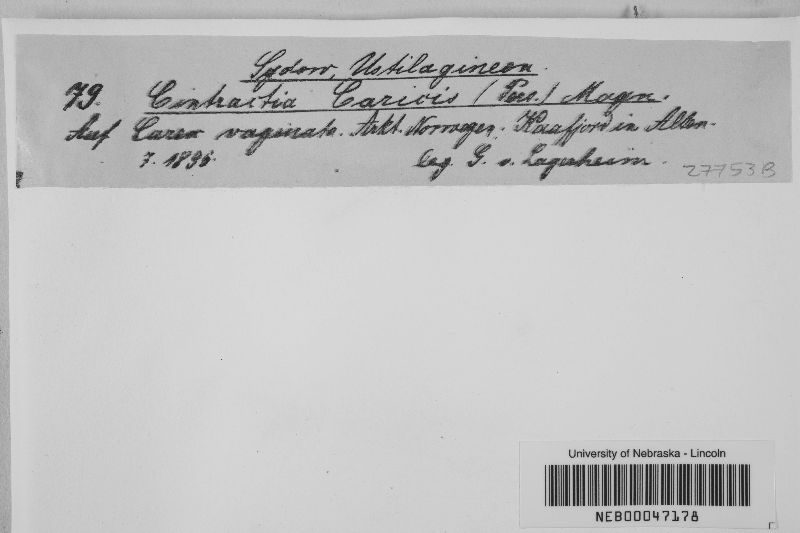 Sydow, Ustilagineen.
79. Cintractia Caricis (Pers.) Magn.
Auf Carex vaginata. Arkt. Norwegen: Kaafjord in Alten.
7. 1896. leg. G. v. Lagerheim.
27753B
University of Nebraska - Lincoln
NEB00047178